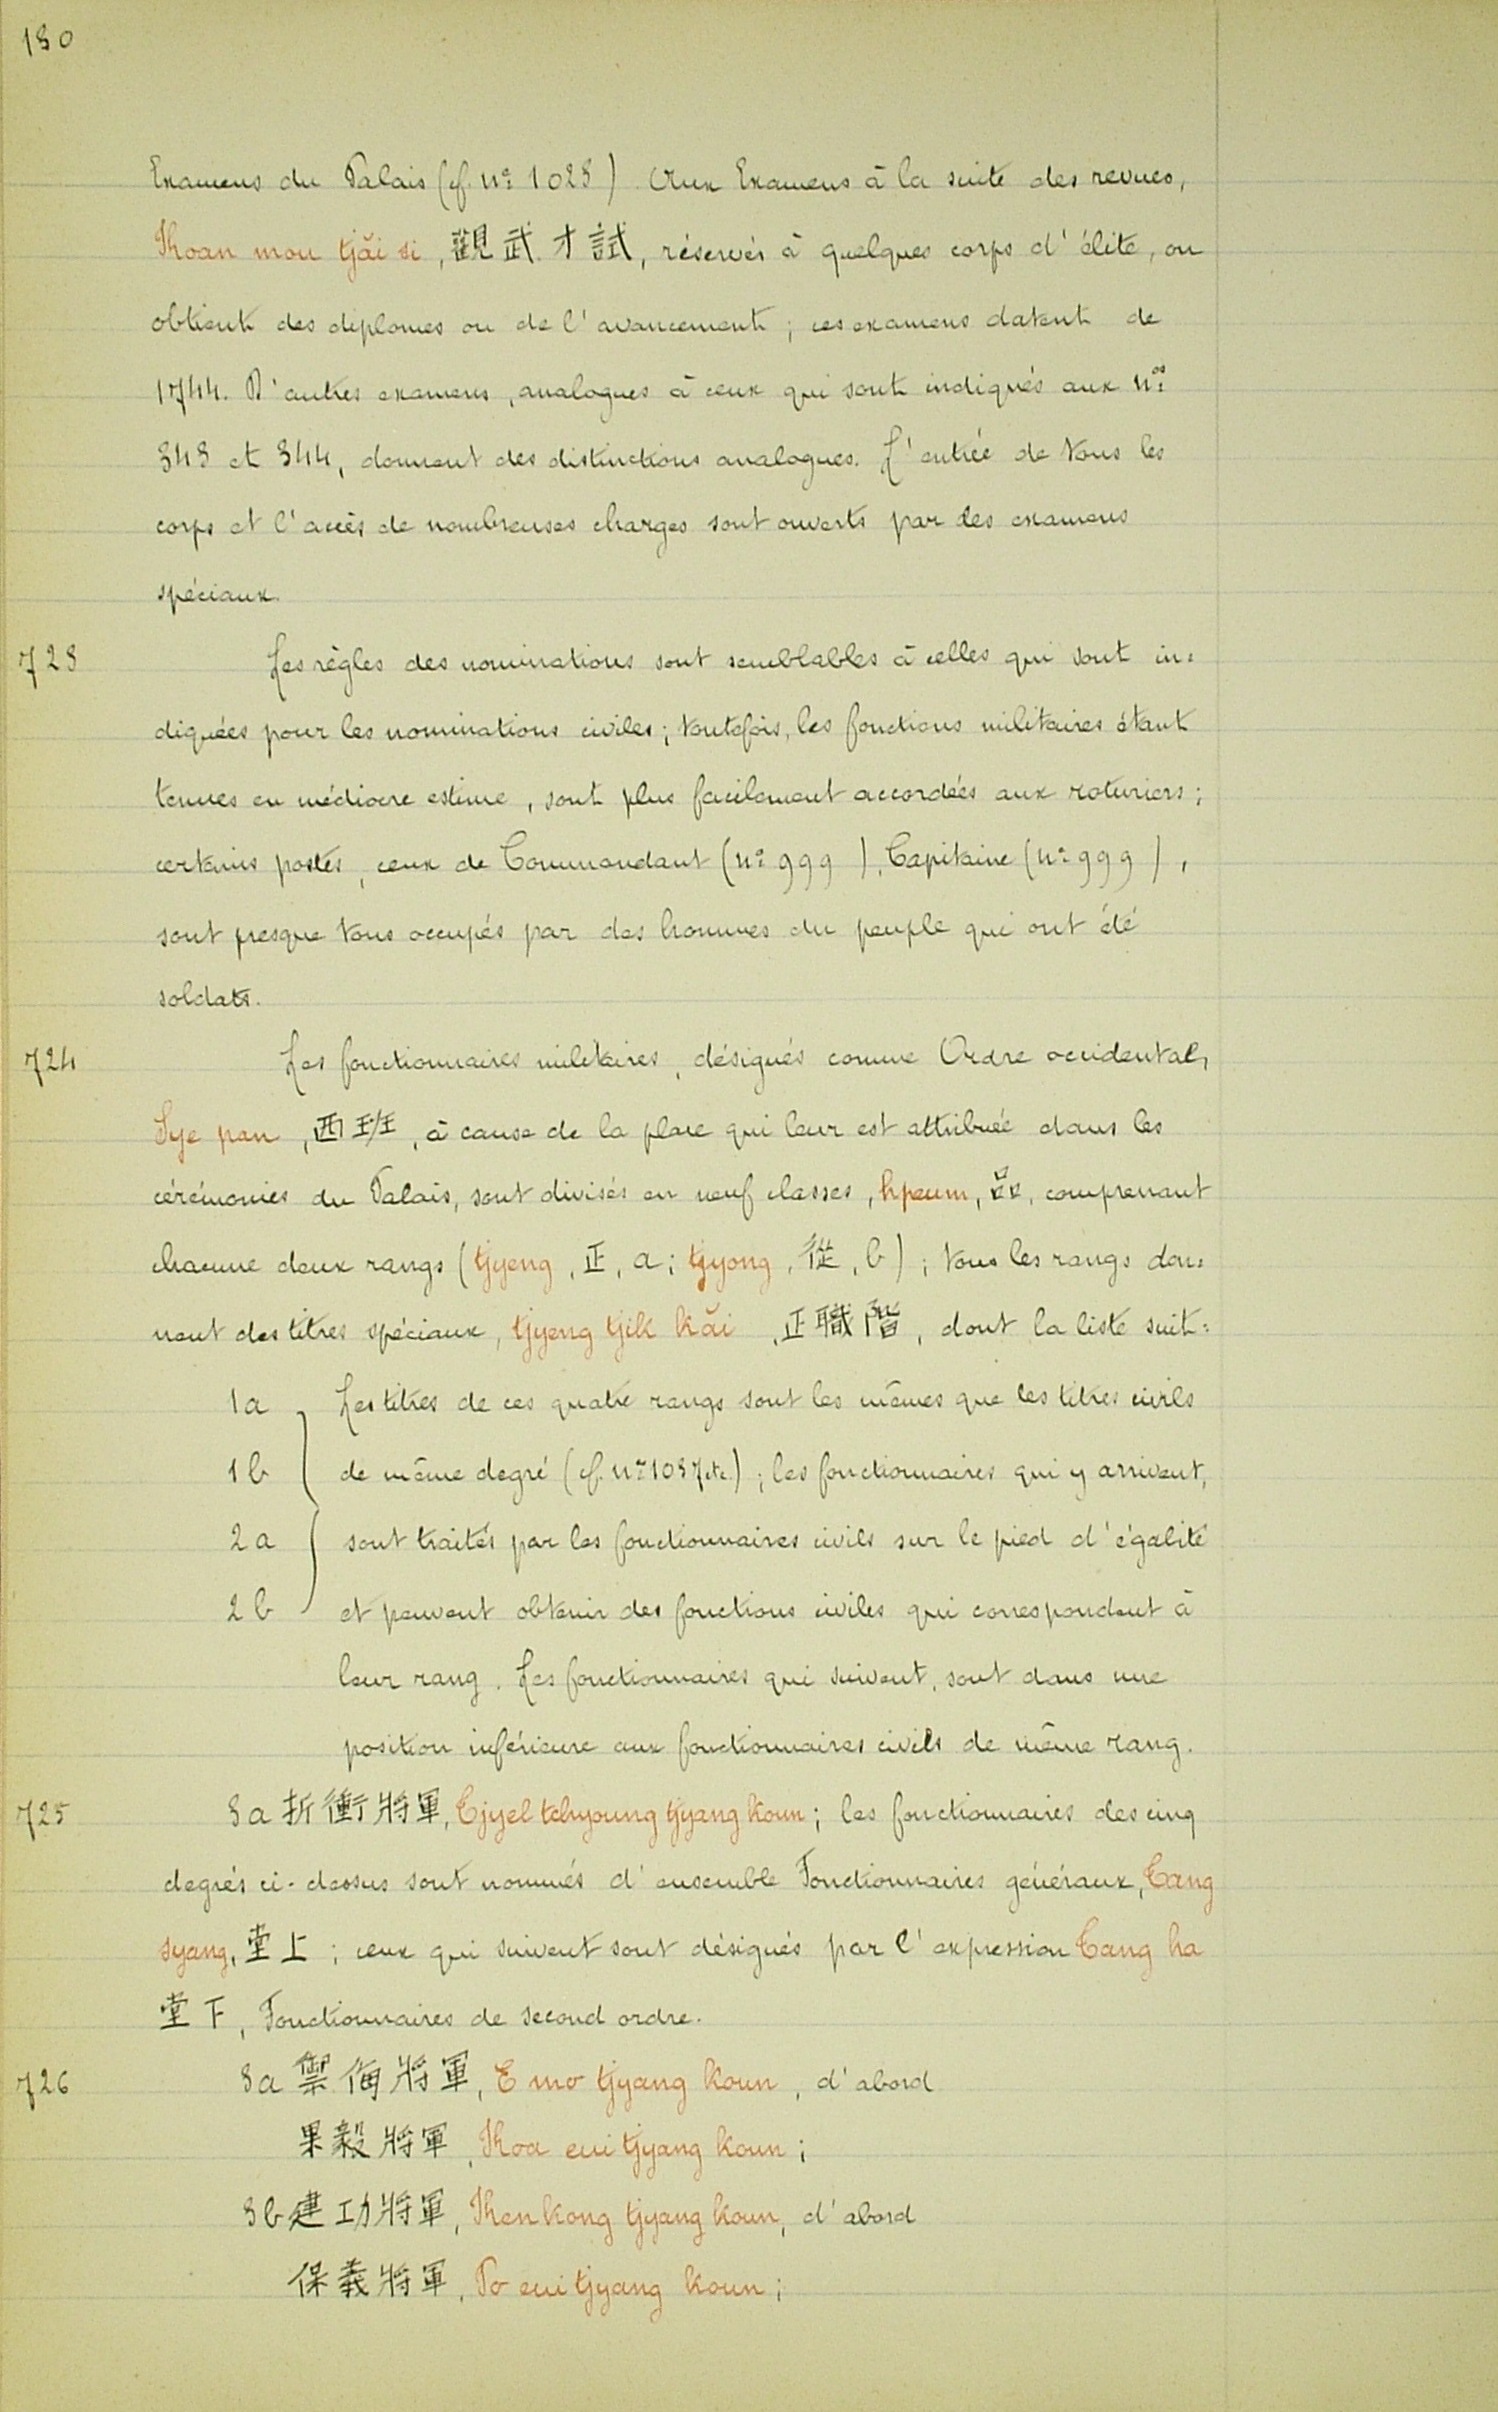 130
Examens du Palais (cf. nº 1023). Aux Examens à la suite des revues,
Koan mou tjăi si, 觀武才試, réservés à quelques corps d'élite, on
obtient des diplomes ou de l'avancement; ces examens datent de
1744. D'autres examens, analogues à ceux qui sont indiqués aux nos
343 et 344, donnent des distinctions analogues. L'entrée de tous les
corps et l'accès de nombreuses charges sont ouverts par des examens
spéciaux.
723 Les règles des nominations sont semblables à celles qui sont in=
diquées pour les nominations civiles; toutefois, les fonctions militaires étant
tenues en médiocre estime, sont plus facilement accordées aux roturiers;
certains postes, ceux de Commandant (nº 999), Capitaine (nº 999),
sont presque tous occupés par des hommes du peuple qui ont été
soldats.
724 Les fonctionnaires militaires, désignés comme Ordre occidental,
Sye pan, 西班, à cause de la place qui leur est attribuée dans les
cérémonies du Palais, sont divisés en neuf classes, hpeum, 品, comprenant
chacune deux rangs (tjyeng, 正, a; tjyong, 從, b); tous les rangs don=
nent des titres spéciaux, tjyeng tjik kăi, 正職階, dont la liste suit:
1a Les titres de ces quatre rangs sont les mêmes que les titres civils
1b de même degré (cf. nº 1037 etc.); les fonctionnaires qui y arrivent,
2a sont traités par les fonctionnaires civils sur le pied d'égalité
2b et peuvent obtenir des fonctions civiles qui correspondent à
leur rang. Les fonctionnaires qui suivent, sont dans une
position inférieure aux fonctionnaires civils de même rang.
725 3a 折衝將軍, Tjyel tchyoung tjyang koun; les fonctionnaires des cinq
degrés ci-dessus sont nommés d'ensemble Fonctionnaires généraux, Tang
syang, 堂上; ceux qui suivent sont désignés par l'expression Tang ha
堂下, Fonctionnaires de second ordre.
726 3a 禦侮將軍, E mo tjyang koun, d'abord
果毅將軍, Koa eui tjyang koun;
3b 建功將軍, Ken kong tjyang koun, d'abord
保義將軍, Po eui tjyang koun;